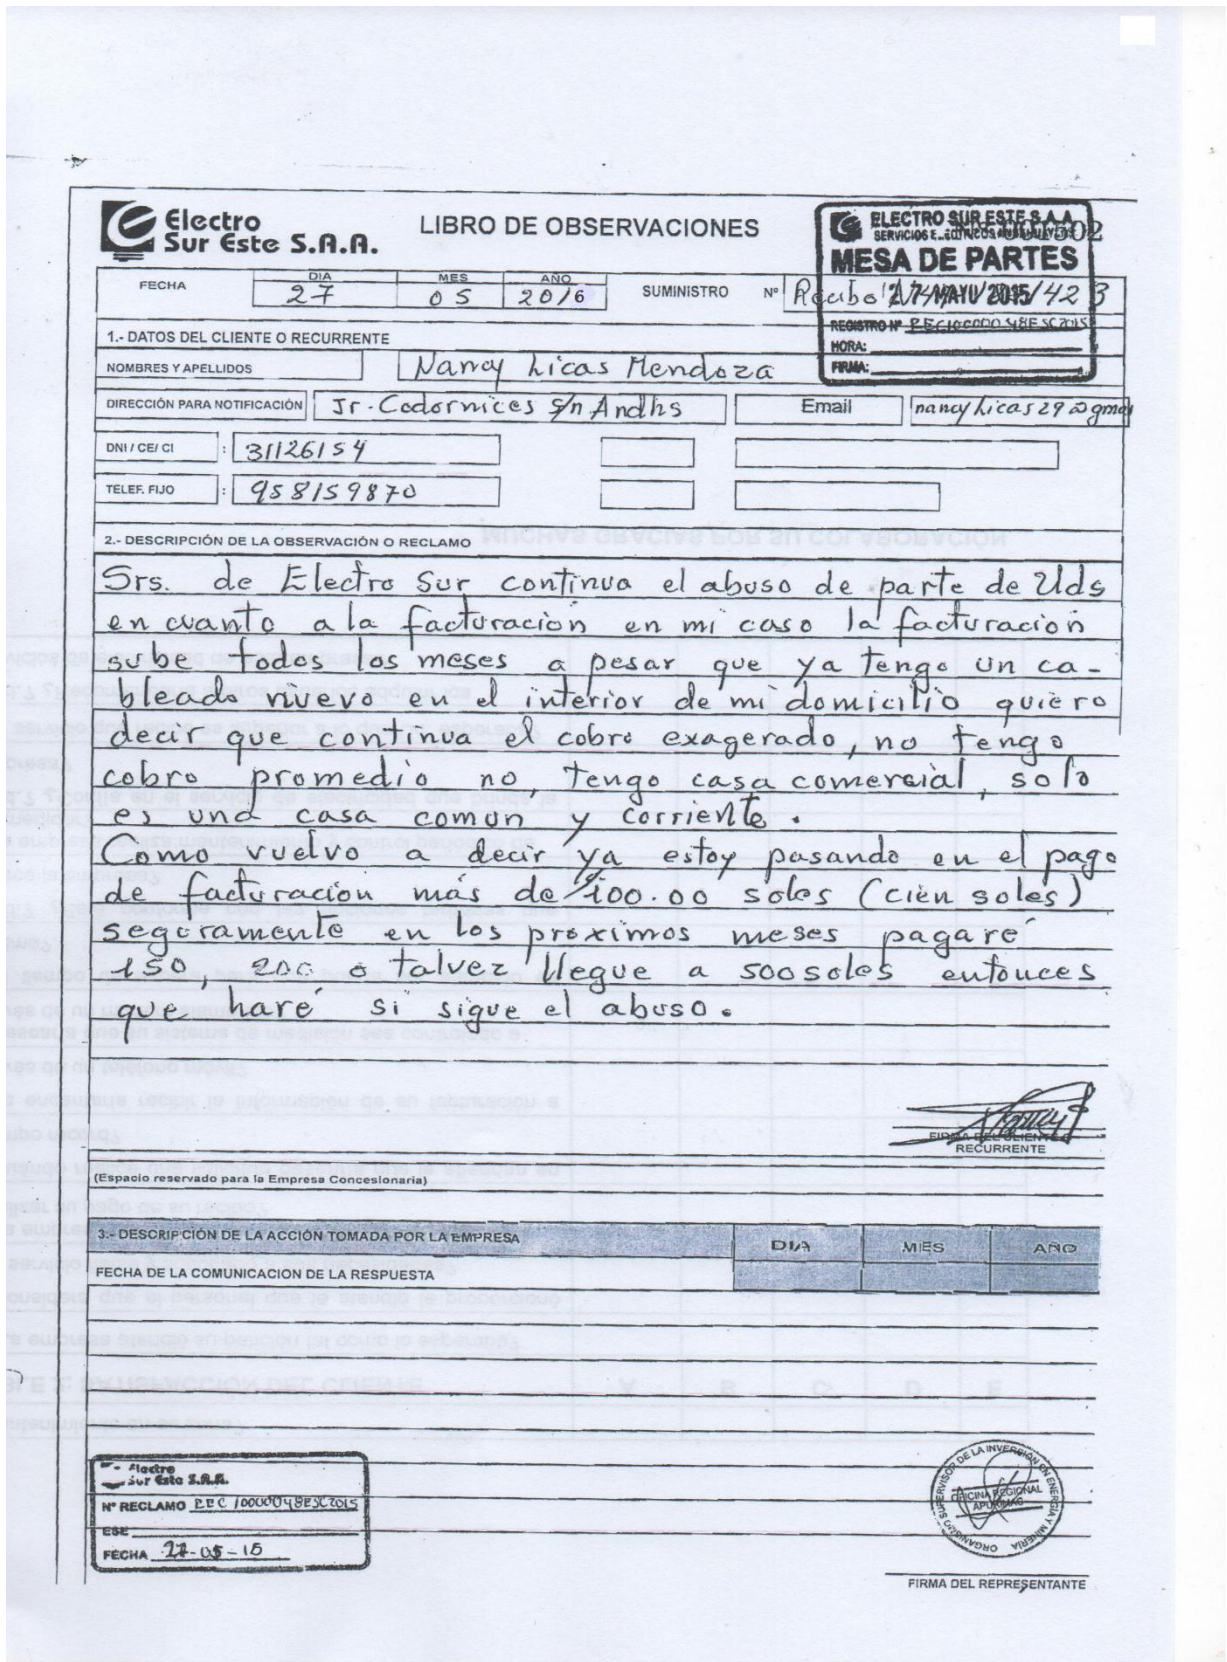 Electro
Sur Este S.A.A.
LIBRO DE OBSERVACIONES
ELECTRO SUR ESTE S.A.A.
MESA DE PARTES
27 MAYO 2015
REGISTRO Nº REC10000048ESC2015
HORA:
FIRMA:
FECHA
DIA MES AÑO
27 05 2016
SUMINISTRO Nº Recibo
1.- DATOS DEL CLIENTE O RECURRENTE
NOMBRES Y APELLIDOS Nancy Licas Mendoza
DIRECCIÓN PARA NOTIFICACIÓN Jr. Codornices S/n Andhs Email nancy licas 29 @ gmai
DNI / CE/ CI : 31126154
TELEF. FIJO : 958159870
2.- DESCRIPCIÓN DE LA OBSERVACIÓN O RECLAMO
Srs. de Electro Sur continua el abuso de parte de Uds
en cuanto a la facturación en mi caso la facturación
sube todos los meses a pesar que ya tengo un ca-
bleado nuevo en el interior de mi domicilio quiero
decir que continua el cobro exagerado, no tengo
cobro promedio no, tengo casa comercial, solo
es una casa comun y corriente.
Como vuelvo a decir ya estoy pasando en el pago
de facturación más de 100.00 soles (cien soles)
seguramente en los próximos meses pagaré
150, 200 o talvez llegue a 500 soles entonces
que haré si sigue el abuso.
FIRMA DEL CLIENTE O
RECURRENTE
(Espacio reservado para la Empresa Concesionaria)
3.- DESCRIPCIÓN DE LA ACCIÓN TOMADA POR LA EMPRESA
DIA MES AÑO
FECHA DE LA COMUNICACION DE LA RESPUESTA
Electro
Sur Este S.A.A.
Nº RECLAMO REC 10000048ESC2015
ESE
FECHA 27-05-15
ORGANISMO SUPERVISOR DE LA INVERSIÓN EN ENERGÍA Y MINERÍA
OFICINA REGIONAL
APURIMAC
FIRMA DEL REPRESENTANTE